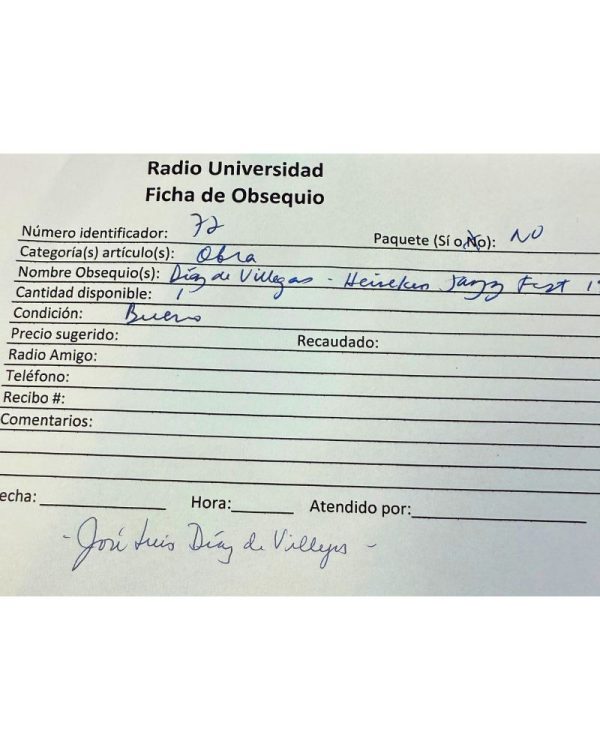 Radio Universidad
Ficha de Obsequio
Número identificador: 72 Paquete (Sí o No): NO
Categoría(s) artículo(s): Obra
Nombre Obsequio(s): Díaz de Villegas - Heineken Jazz Fest
Cantidad disponible: 1
Condición: Bueno
Precio sugerido: Recaudado:
Radio Amigo:
Teléfono:
Recibo #:
Comentarios:
echa: Hora: Atendido por:
- José Luis Díaz de Villegas -